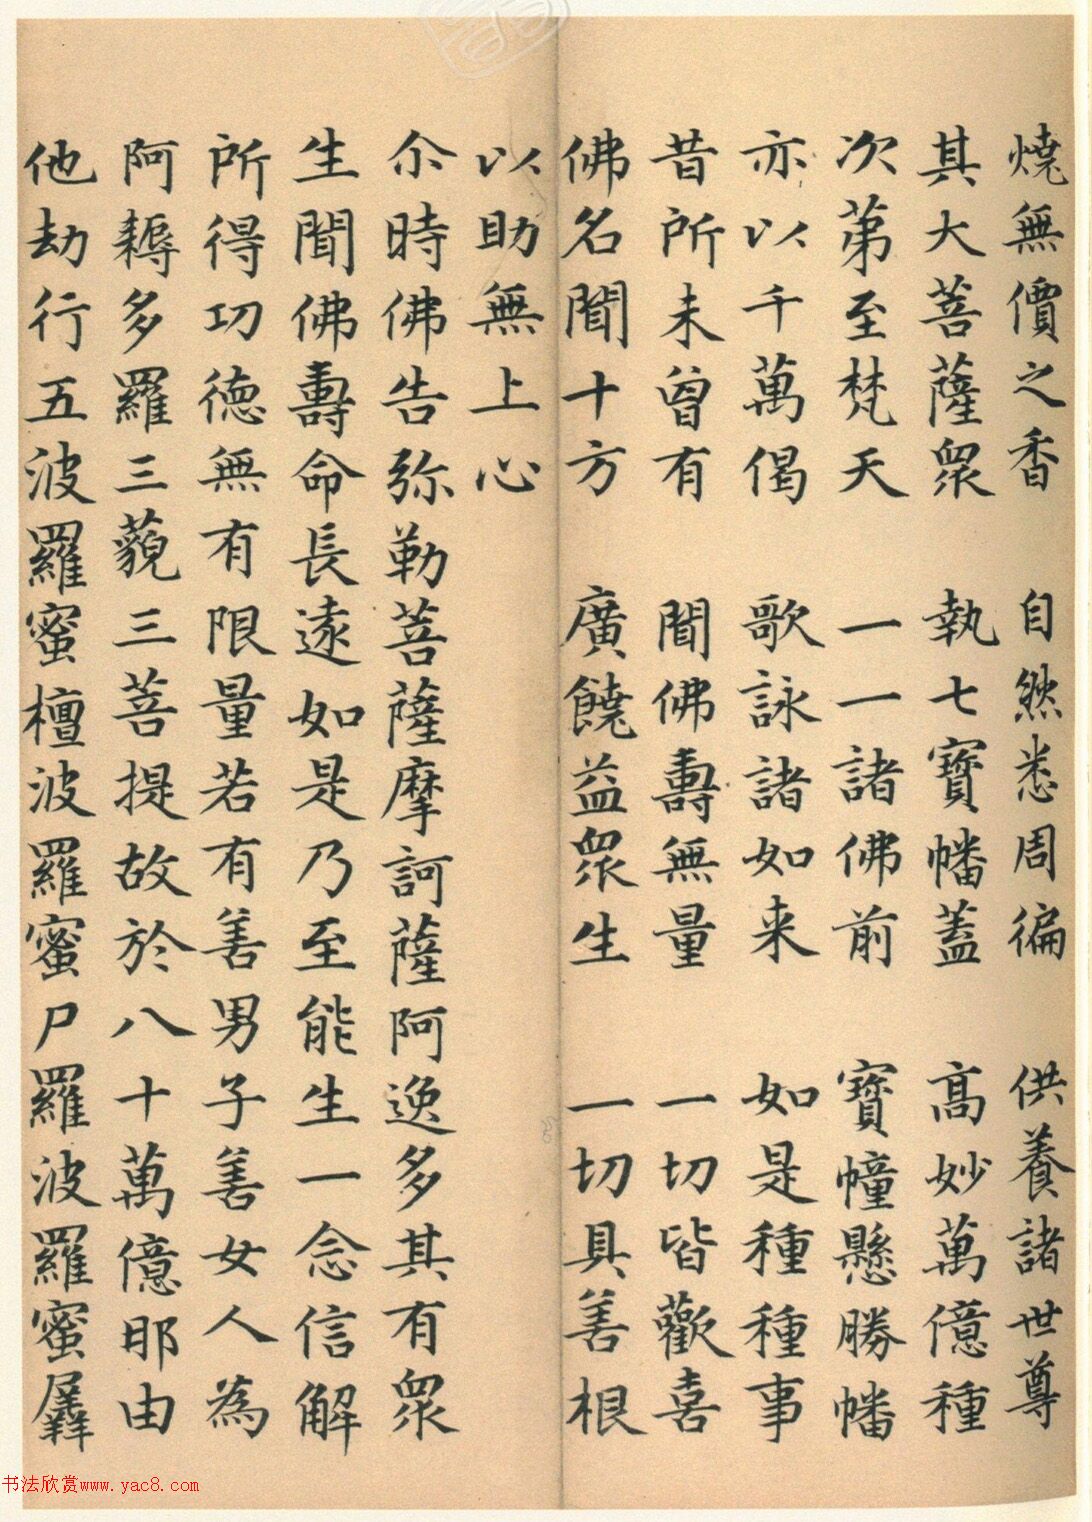 燒無價之香　自然悉周徧　供養諸世尊
其大菩薩眾　執七寶幡蓋　高妙萬億種
次第至梵天　一一諸佛前　寶幢懸勝幡
亦以千萬偈　歌詠諸如来　如是種種事
昔所未曾有　聞佛壽無量　一切皆歡喜
佛名聞十方　廣饒益眾生　一切具善根
以助無上心
尒時佛告弥勒菩薩摩訶薩阿逸多其有眾
生聞佛壽命長遠如是乃至能生一念信解
所得功德無有限量若有善男子善女人為
阿耨多羅三藐三菩提故於八十萬億那由
他劫行五波羅蜜檀波羅蜜尸羅波羅蜜羼
书法欣赏www.yac8.com